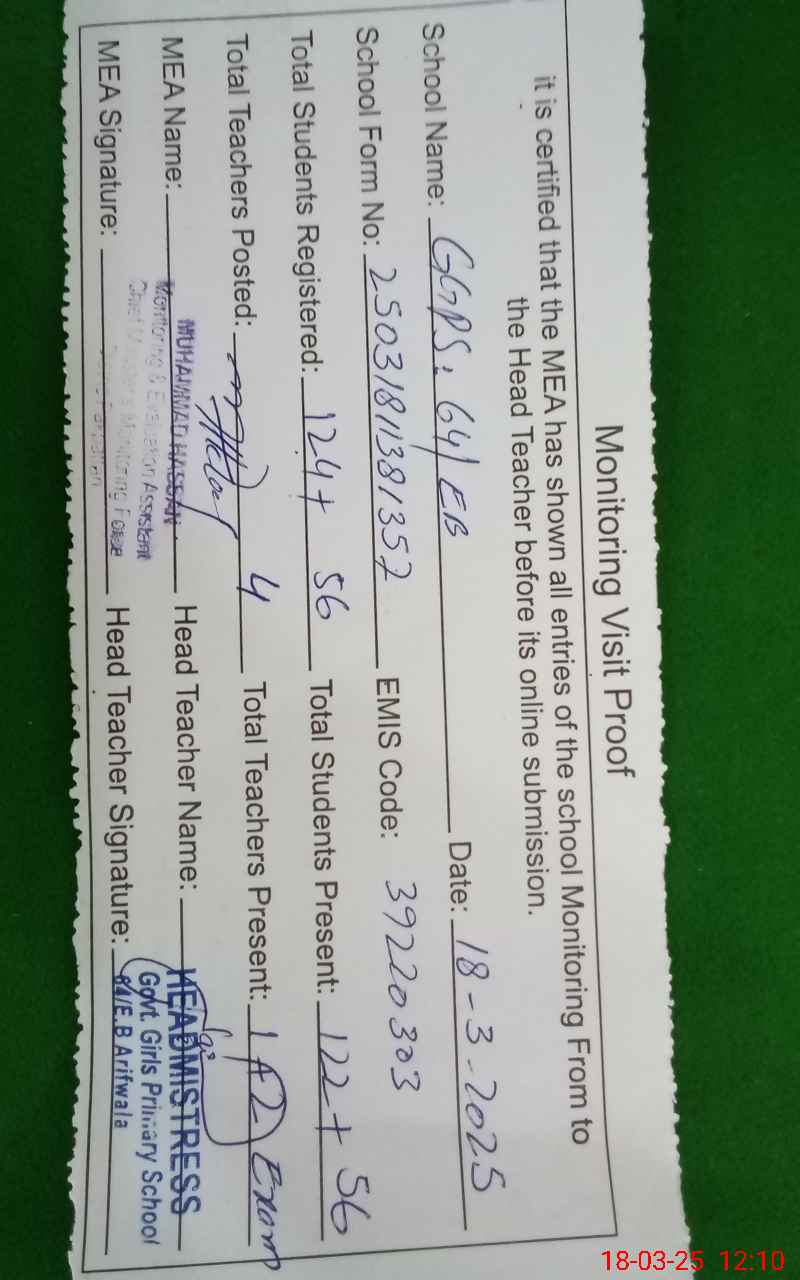 Monitoring Visit Proof
it is certified that the MEA has shown all entries of the school Monitoring From to
the Head Teacher before its online submission.
School Name: GGPS. 64/EB Date: 18-3-2025
School Form No: 25031811381357 EMIS Code: 39220303
Total Students Registered: 124+ 56 Total Students Present: 122+ 56
Total Teachers Posted: 4 Total Teachers Present: 1 Exam
MEA Name: MUHAMMAD HASSAN Head Teacher Name: HEADMISTRESS
Monitoring & Evaluation Assistant Govt. Girls Primary School
MEA Signature: Chief Minister's Monitoring Force Head Teacher Signature: 64/E.B Arifwala
18-03-25 12:10